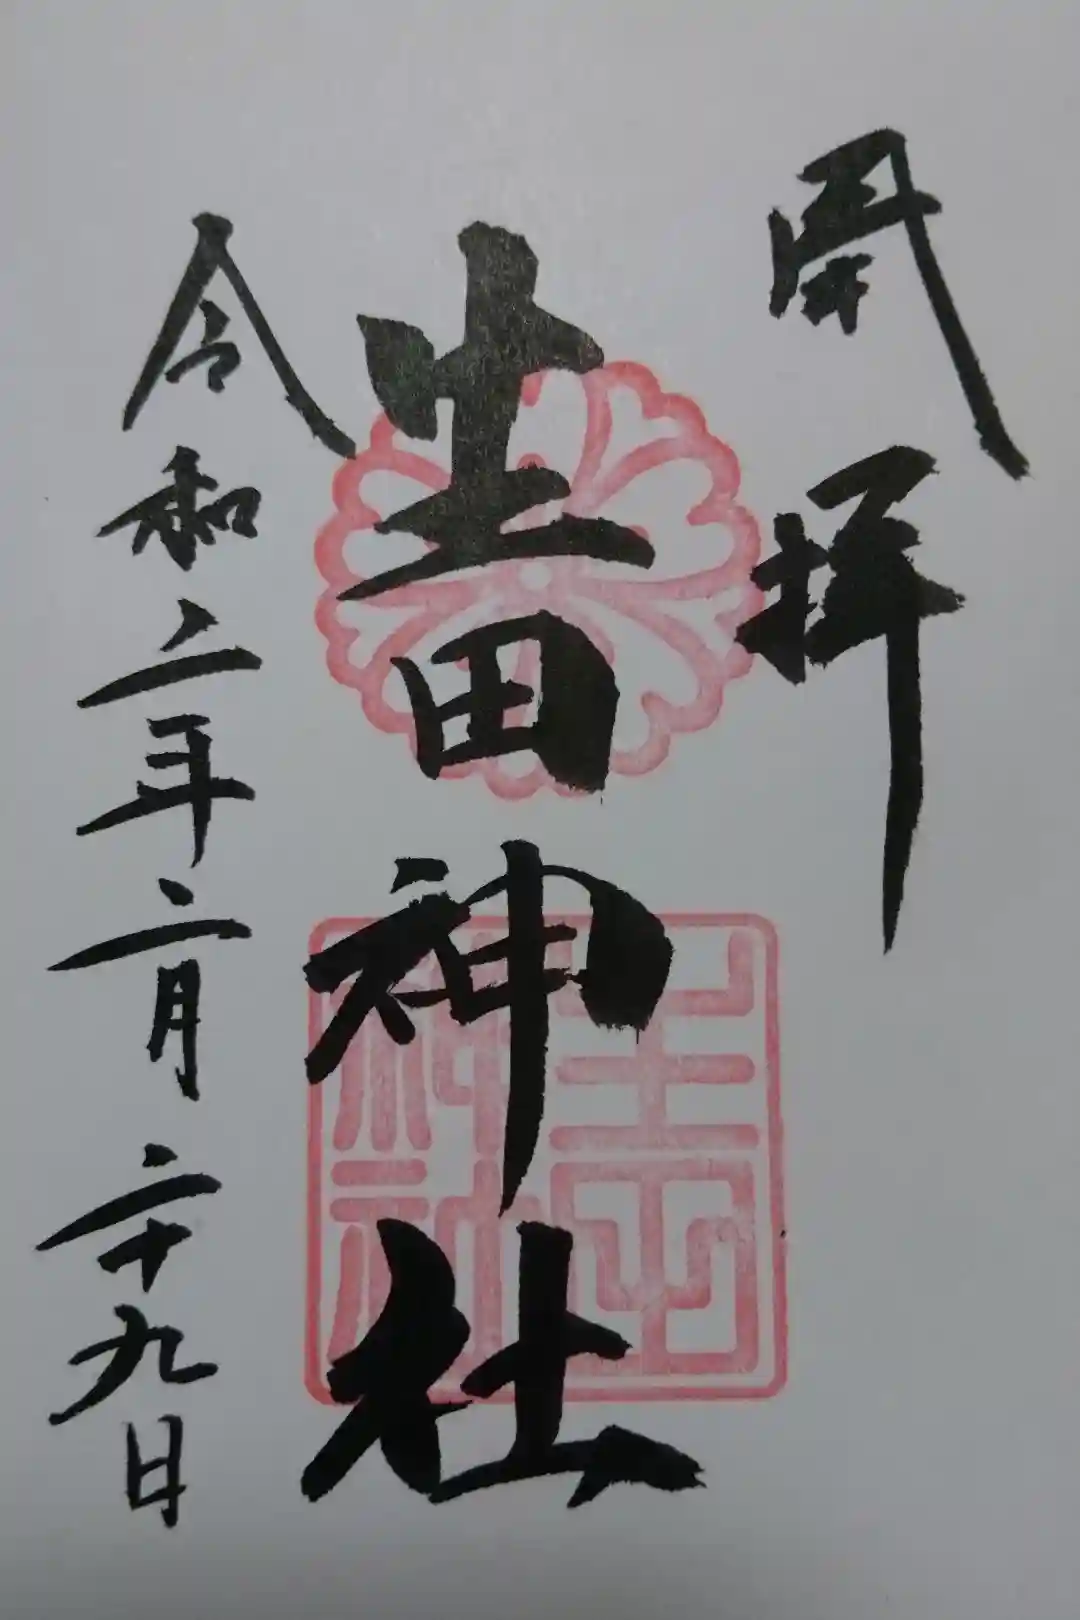 拝
生田神社
令和二年二月二十九日
生田
神社